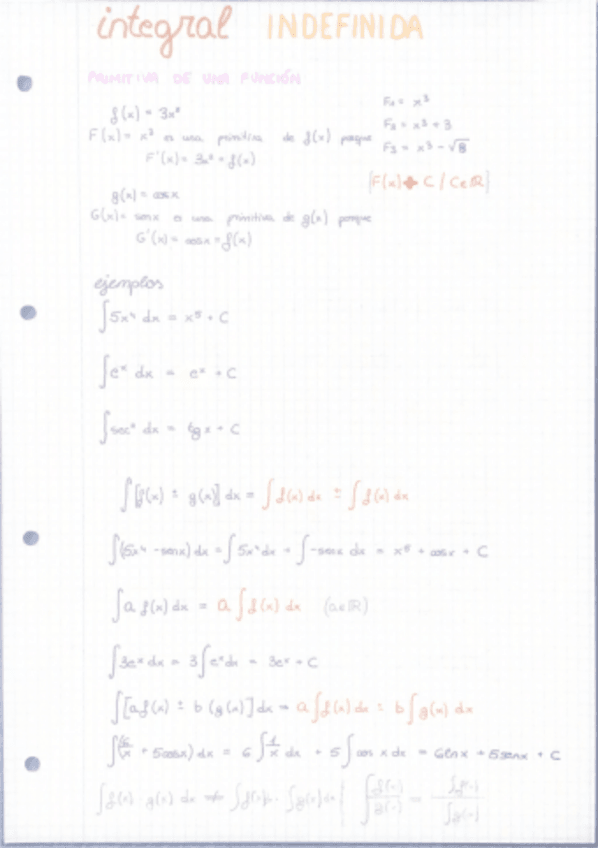 integral INDEFINIDA
PRIMITIVA DE UNA FUNCIÓN
f(x) = 3x²
F₁ = x³
F₂ = x³ + 3
F(x) = x³ es una primitiva de f(x) porque
F₃ = x³ - √8
F'(x) = 3x² = f(x)
F(x) + C / C∈ℝ
g(x) = cosx
G(x) = senx es una primitiva de g(x) porque
G'(x) = cosx = f(x)
ejemplos
∫5x⁴ dx = x⁵ + C
∫eˣ dx = eˣ + C
∫sec² dx = tg x + C
∫[f(x) ± g(x)] dx = ∫f(x) dx ± ∫f(x) dx
∫(5x⁴ - senx) dx = ∫5x⁴ dx + ∫-senx dx = x⁵ + cosx + C
∫a f(x) dx = a ∫f(x) dx (a∈ℝ)
∫3eˣ dx = 3∫eˣdx = 3eˣ + C
∫[af(x) ± b (g(x)] dx = a∫f(x) dx ± b∫g(x) dx
∫(6/x + 5cosx) dx = 6 ∫1/x dx + 5 ∫cos x dx = 6lnx + 5senx + C
∫f(x) · g(x) dx ≠ ∫f(x) · ∫g(x) dx